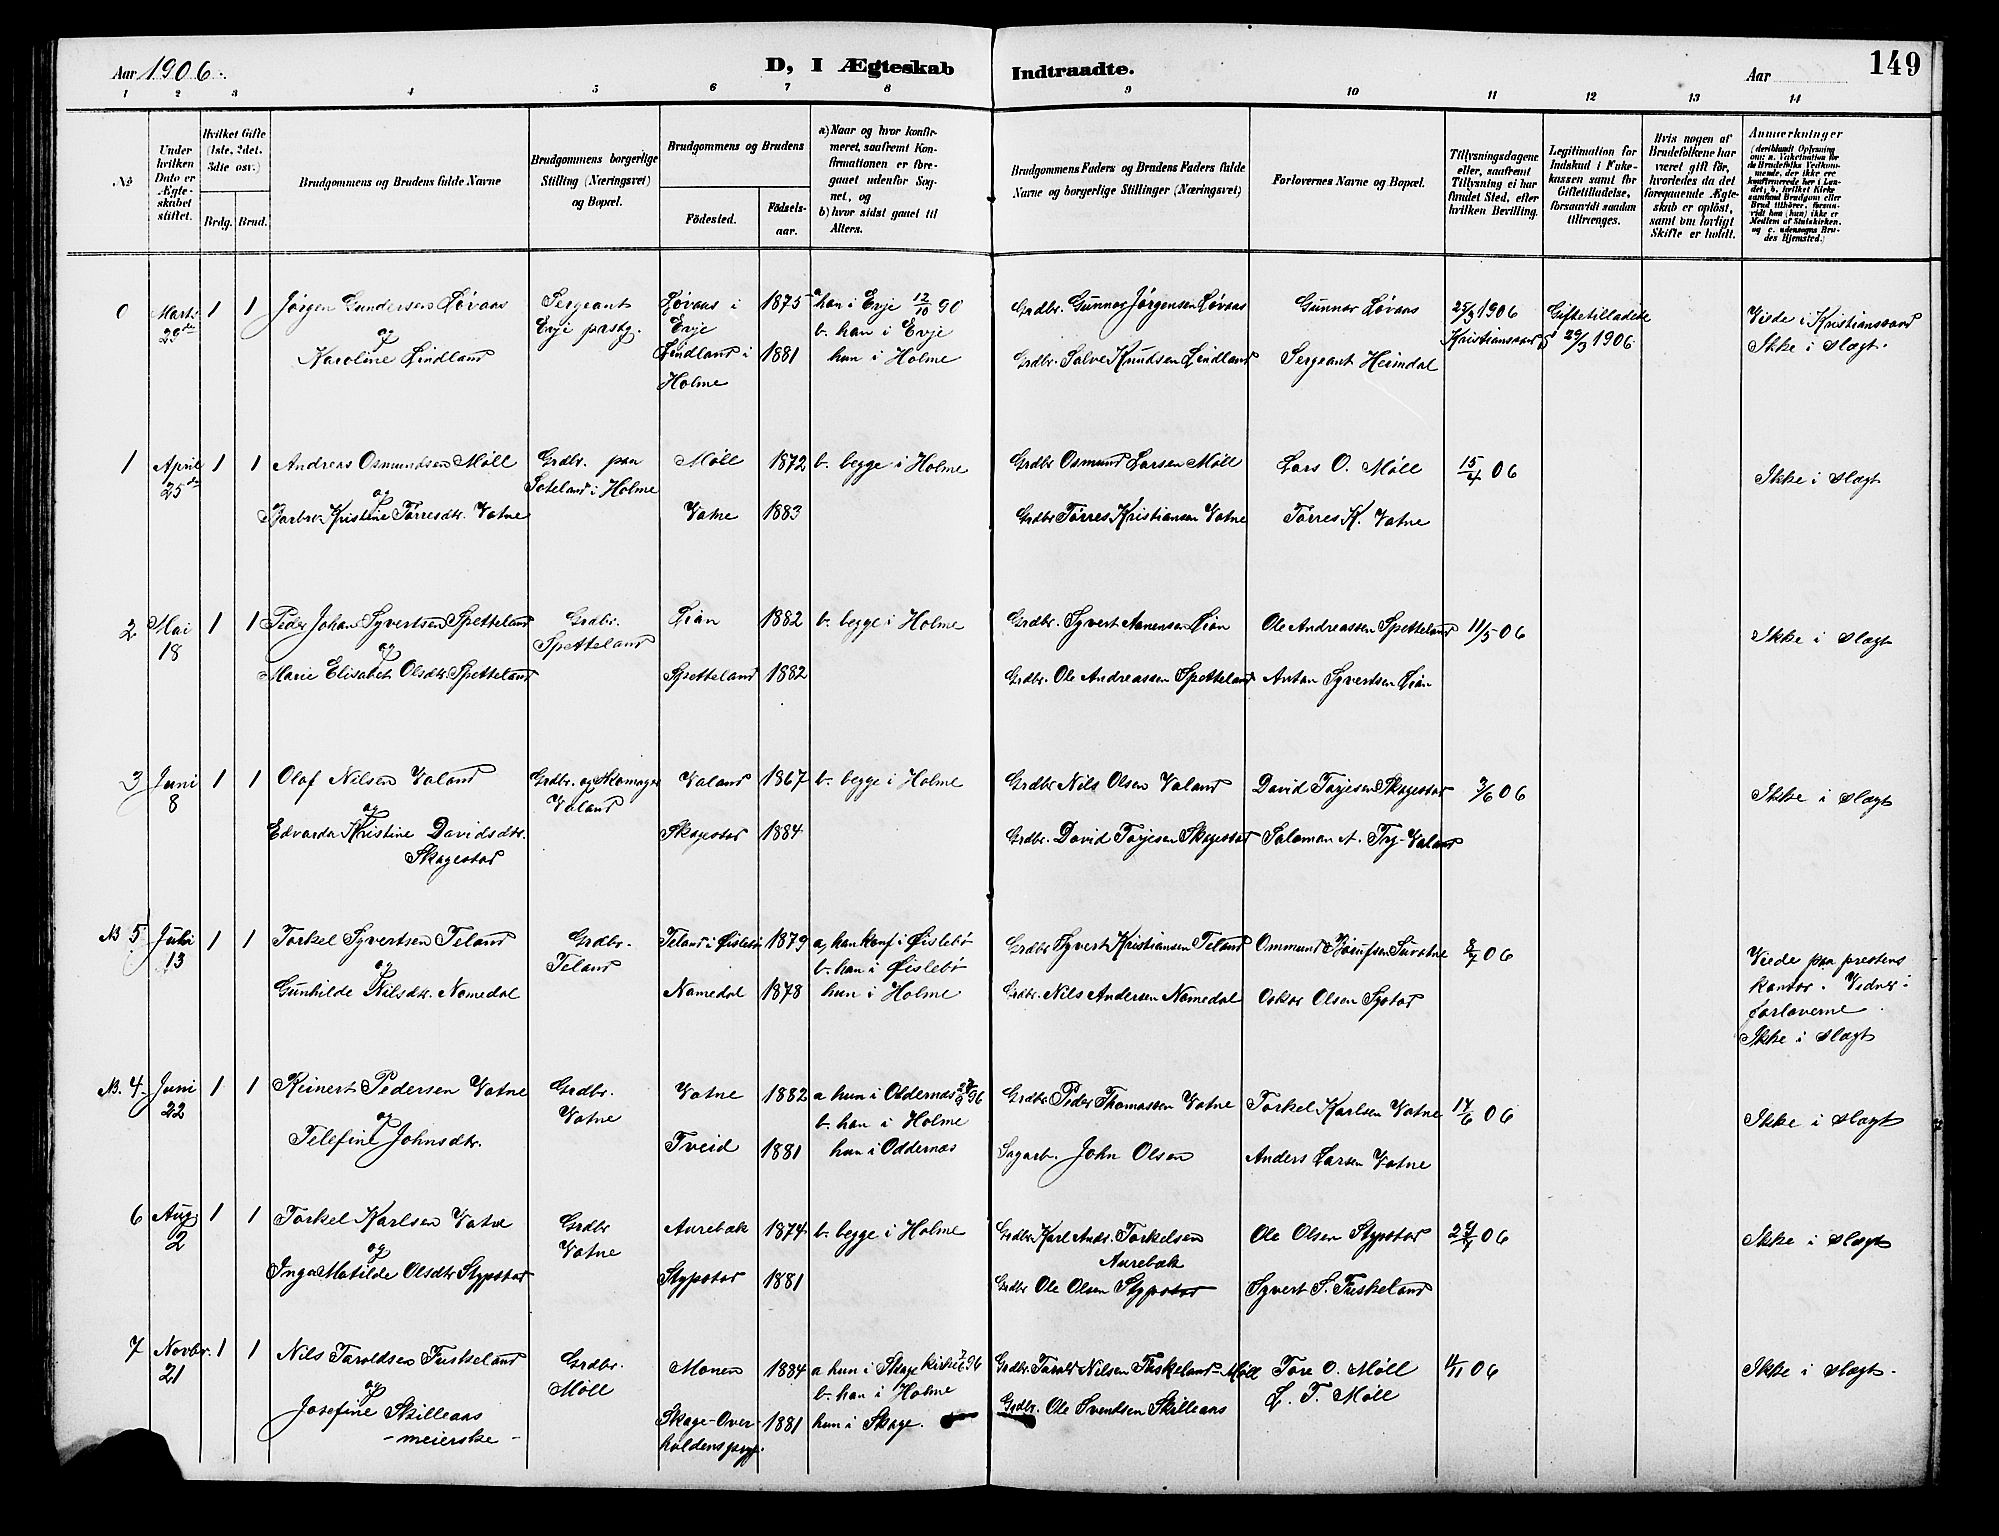 Aar 1906.
D, I Ægteskab Indtraadte.
Aar
149
1 2 3 4 5 6 7 8 9 10 11 12 13 14
No
Under hvilken Dato er Ægteskabet stiftet.
Hvilket Gifte (1ste, 2det, 3die osv.)
Brdg. Brud.
Brudgommens og Brudens fulde Navne
Brudgommens borgerlige Stilling (Næringsvei) og Bopæl.
Brudgommens og Brudens
Fødested.
Fødselsaar.
a) Naar og hvor konfirmeret, saafremt Konfirmationen er foregaaet udenfor Sognet, og
b) hvor sidst gaaet til Alters.
Brudgommens Faders og Brudens Faders fulde Navne og borgerlige Stillinger (Næringsvei)
Forlovernes Navne og Bopæl.
Tillysningsdagene eller, saafremt Tillysning ei har fundet Sted, efter hvilken Bevilling.
Legitimation for Indskud i Enkekassen samt for Giftetilladelse, forsaavidt saadan tiltrænges.
Hvis nogen af Brudefolkene har været gift før, hvorledes da det foregaaende Ægteskab er opløst, samt om lovligt Skifte er holdt.
Anmærkninger (deriblandt Oplysning om: a. Vakcination for de Brudefolks Vedkommende, der ikke ere konfirmerede her i Landet; b. hvilket Kirkesamfund Brudgom eller Brud tilhører, forsaavidt han (hun) ikke er Medlem af Statskirken, og c. udensogns Brudes Hjemsted.)
0 Marts 29de 1 1 Jørgen Gundersen Løvaas
og
Karoline Lindland
Sergeant
Evje prstg.
Løvaas i Evje 1875
Lindland i Holme 1881
a han i Evje 12/10 90
b. han i Evje
hun i Holme
Grdbr. Gunnar Jørgensen Løvaas
Grdbr. Salve Knudsen Lindland
Gunnar Løvaas
Sergeant Heimdal
25/3 1906
Kristianssand
Giftetilladelse
29/3 1906
Viede i Kristianssand
Ikke i slægt.
1 April 25de 1 1 Andreas Osmundsen Møll
og
Barbro Kristine Tørresdtr. Vatne
Grdbr. paa
i Holme
Møll 1872
Vatne 1883
b. begge i Holme
Grdbr Osmund Larsen Møll
Grdbr Tørres Kristiansen Vatne
Lars O. Møll
Tørres K. Vatne
15/4 06
Ikke i slægt
2 Mai 18 1 1 Peder Johan Syvertsen Spetteland
og
Marie Elisabet Olsdtr Spetteland
Grdbr.
Spetteland
Lian 1882
Spetteland 1882
b. begge i Holme
Grdbr. Syvert Aanensen Lian
Grdbr. Ole Andreassen Spetteland
Ole Andreassen Spetteland
Anton Syvertsen Lian
11/5 06
Ikke i slægt
3 Juni 8 1 1 Olaf Nilsen Valand
og
Edvarda Kristine Davidsdtr.
Skagestad
Grdbr. og
Valand
Valand 1867
Skagestad 1884
b. begge i Holme
Grdbr Nils Olsen Valand
Grdbr. David Torjesen Skagestad
David Torjesen Skagestad
Salamon A. Try-Valand
3/6 06
Ikke i slægt
NB 5 Juli 13 1 1 Torkel Syvertsen Teland
og
Gunhilde Nilsdtr. Namedal
Grdbr.
Teland
Teland i Øislebø 1879
Namedal 1878
a, han konf i Øislebø
b. han i Øislebø
hun i Holme
Grdbr Syvert Kristiansen Teland
Grdbr. Nils Andersen Namedal
Ommund
Oskar Olsen
8/7 06
Viede paa prestens
kontor. Vidner:
forloverne.
Ikke i slægt
NB. 4. Juni 22 1 1 Reinert Pedersen Vatne
og
Telefine Johnsdtr.
Grdbr.
Vatne
Vatne 1882
Tveid 1881
a hun i Oddernes 96
b. han i Holme
hun i Oddernes
Grdbr Peder Thomassen Vatne
Sagarb. John Olsen
Torkel Karlsen Vatne
Anders Larsen Vatne
17/6 06
Ikke i slægt
6 Aug. 2 1 1 Torkel Karlsen Vatne
og
Inga Matilde Olsdtr Stypstad
Grdbr
Vatne
Aurebæk 1874
Stypstad 1881
b. begge i Holme
Grdbr Karl Andr. Torkelsen
Aurebæk
Grdbr Ole Olsen Stypstad
Ole Olsen Stypstad
Syvert S. Fuskeland
29/7 06
Ikke i slægt
7 Novbr. 21 1 1 Nils Taraldsen Fuskeland
og
Josefine Skilleaas
- meierske -
Grdbr.
Møll
Monen 1884
Skage-Over-
haldens prgj. 1881
a hun i Skage kirke 96
b. han i Holme
hun i Skage.
Grdbr Tarald Nilsen Fuskeland-Møll
Grdbr. Ole Svendsen Skilleaas
Tore O. Møll
L. T. Møll
11/11 06
Ikke i slægt.